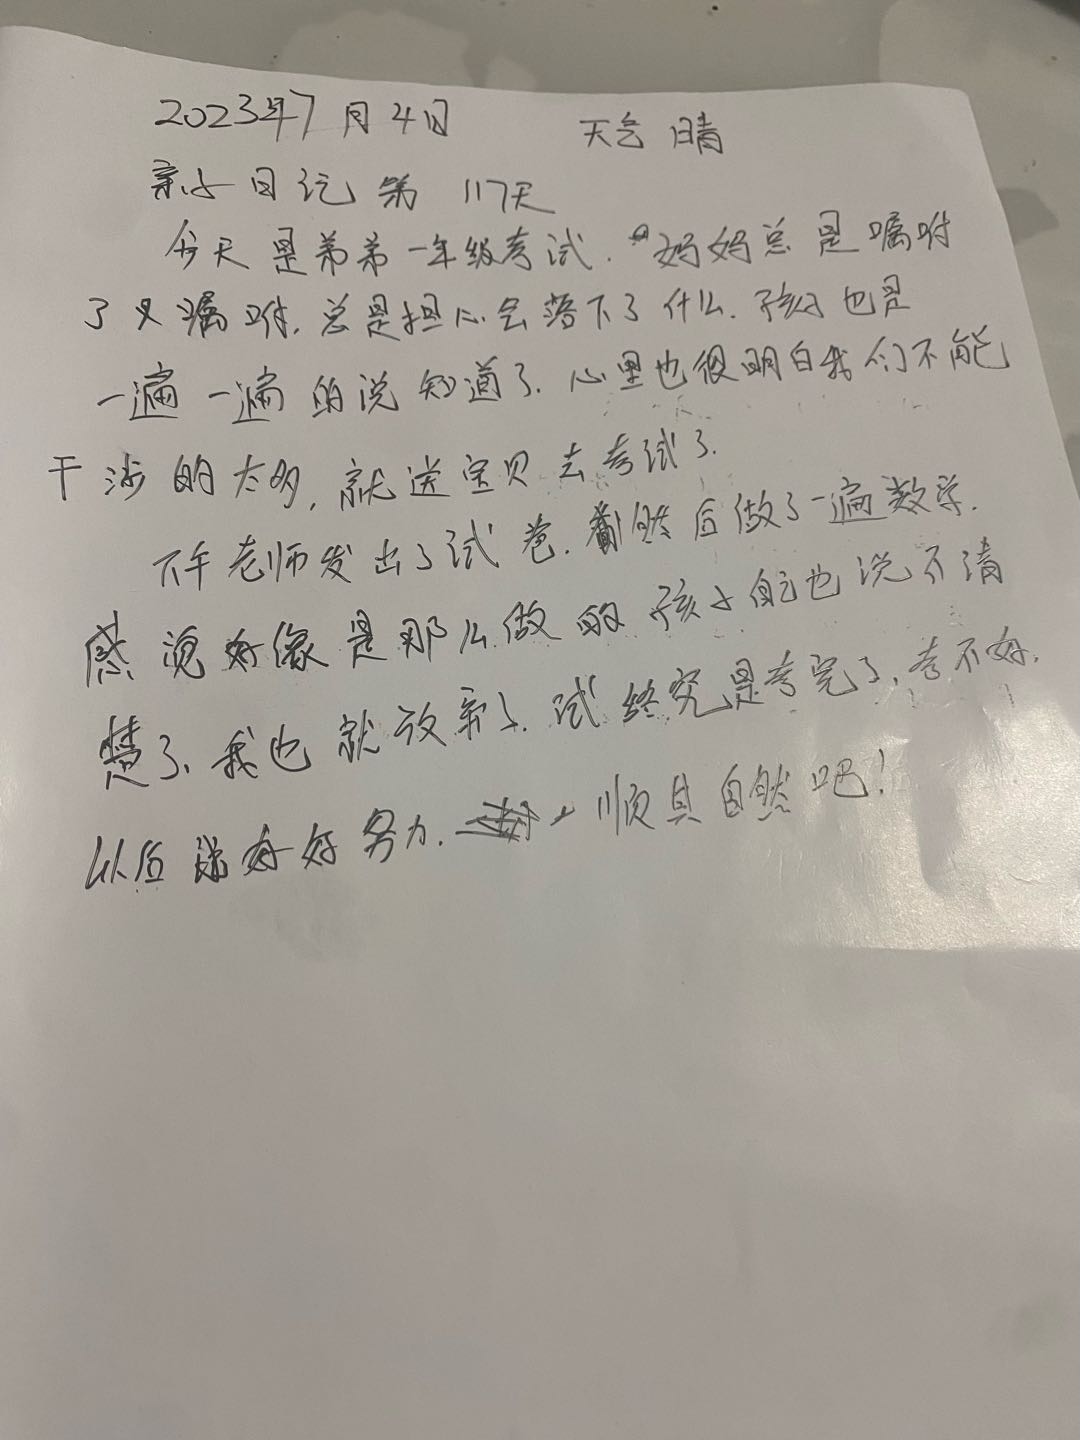 2023年7月4日 天气 晴
亲子日记 第 117天
今天是弟弟一年级考试.妈妈总是嘱咐
了又嘱咐.总是担心会落下了什么.孩子也是
一遍一遍的说知道了.心里也很明白我们不能
干涉的太多,就送宝贝去考试了.
下午老师发出了试卷.然后做了一遍数学.
感觉好像是那么做的孩子自己也说不清
楚了、我也就放弃了.试终究是考完了、考不好.
以后说好好努力.顺其自然吧!